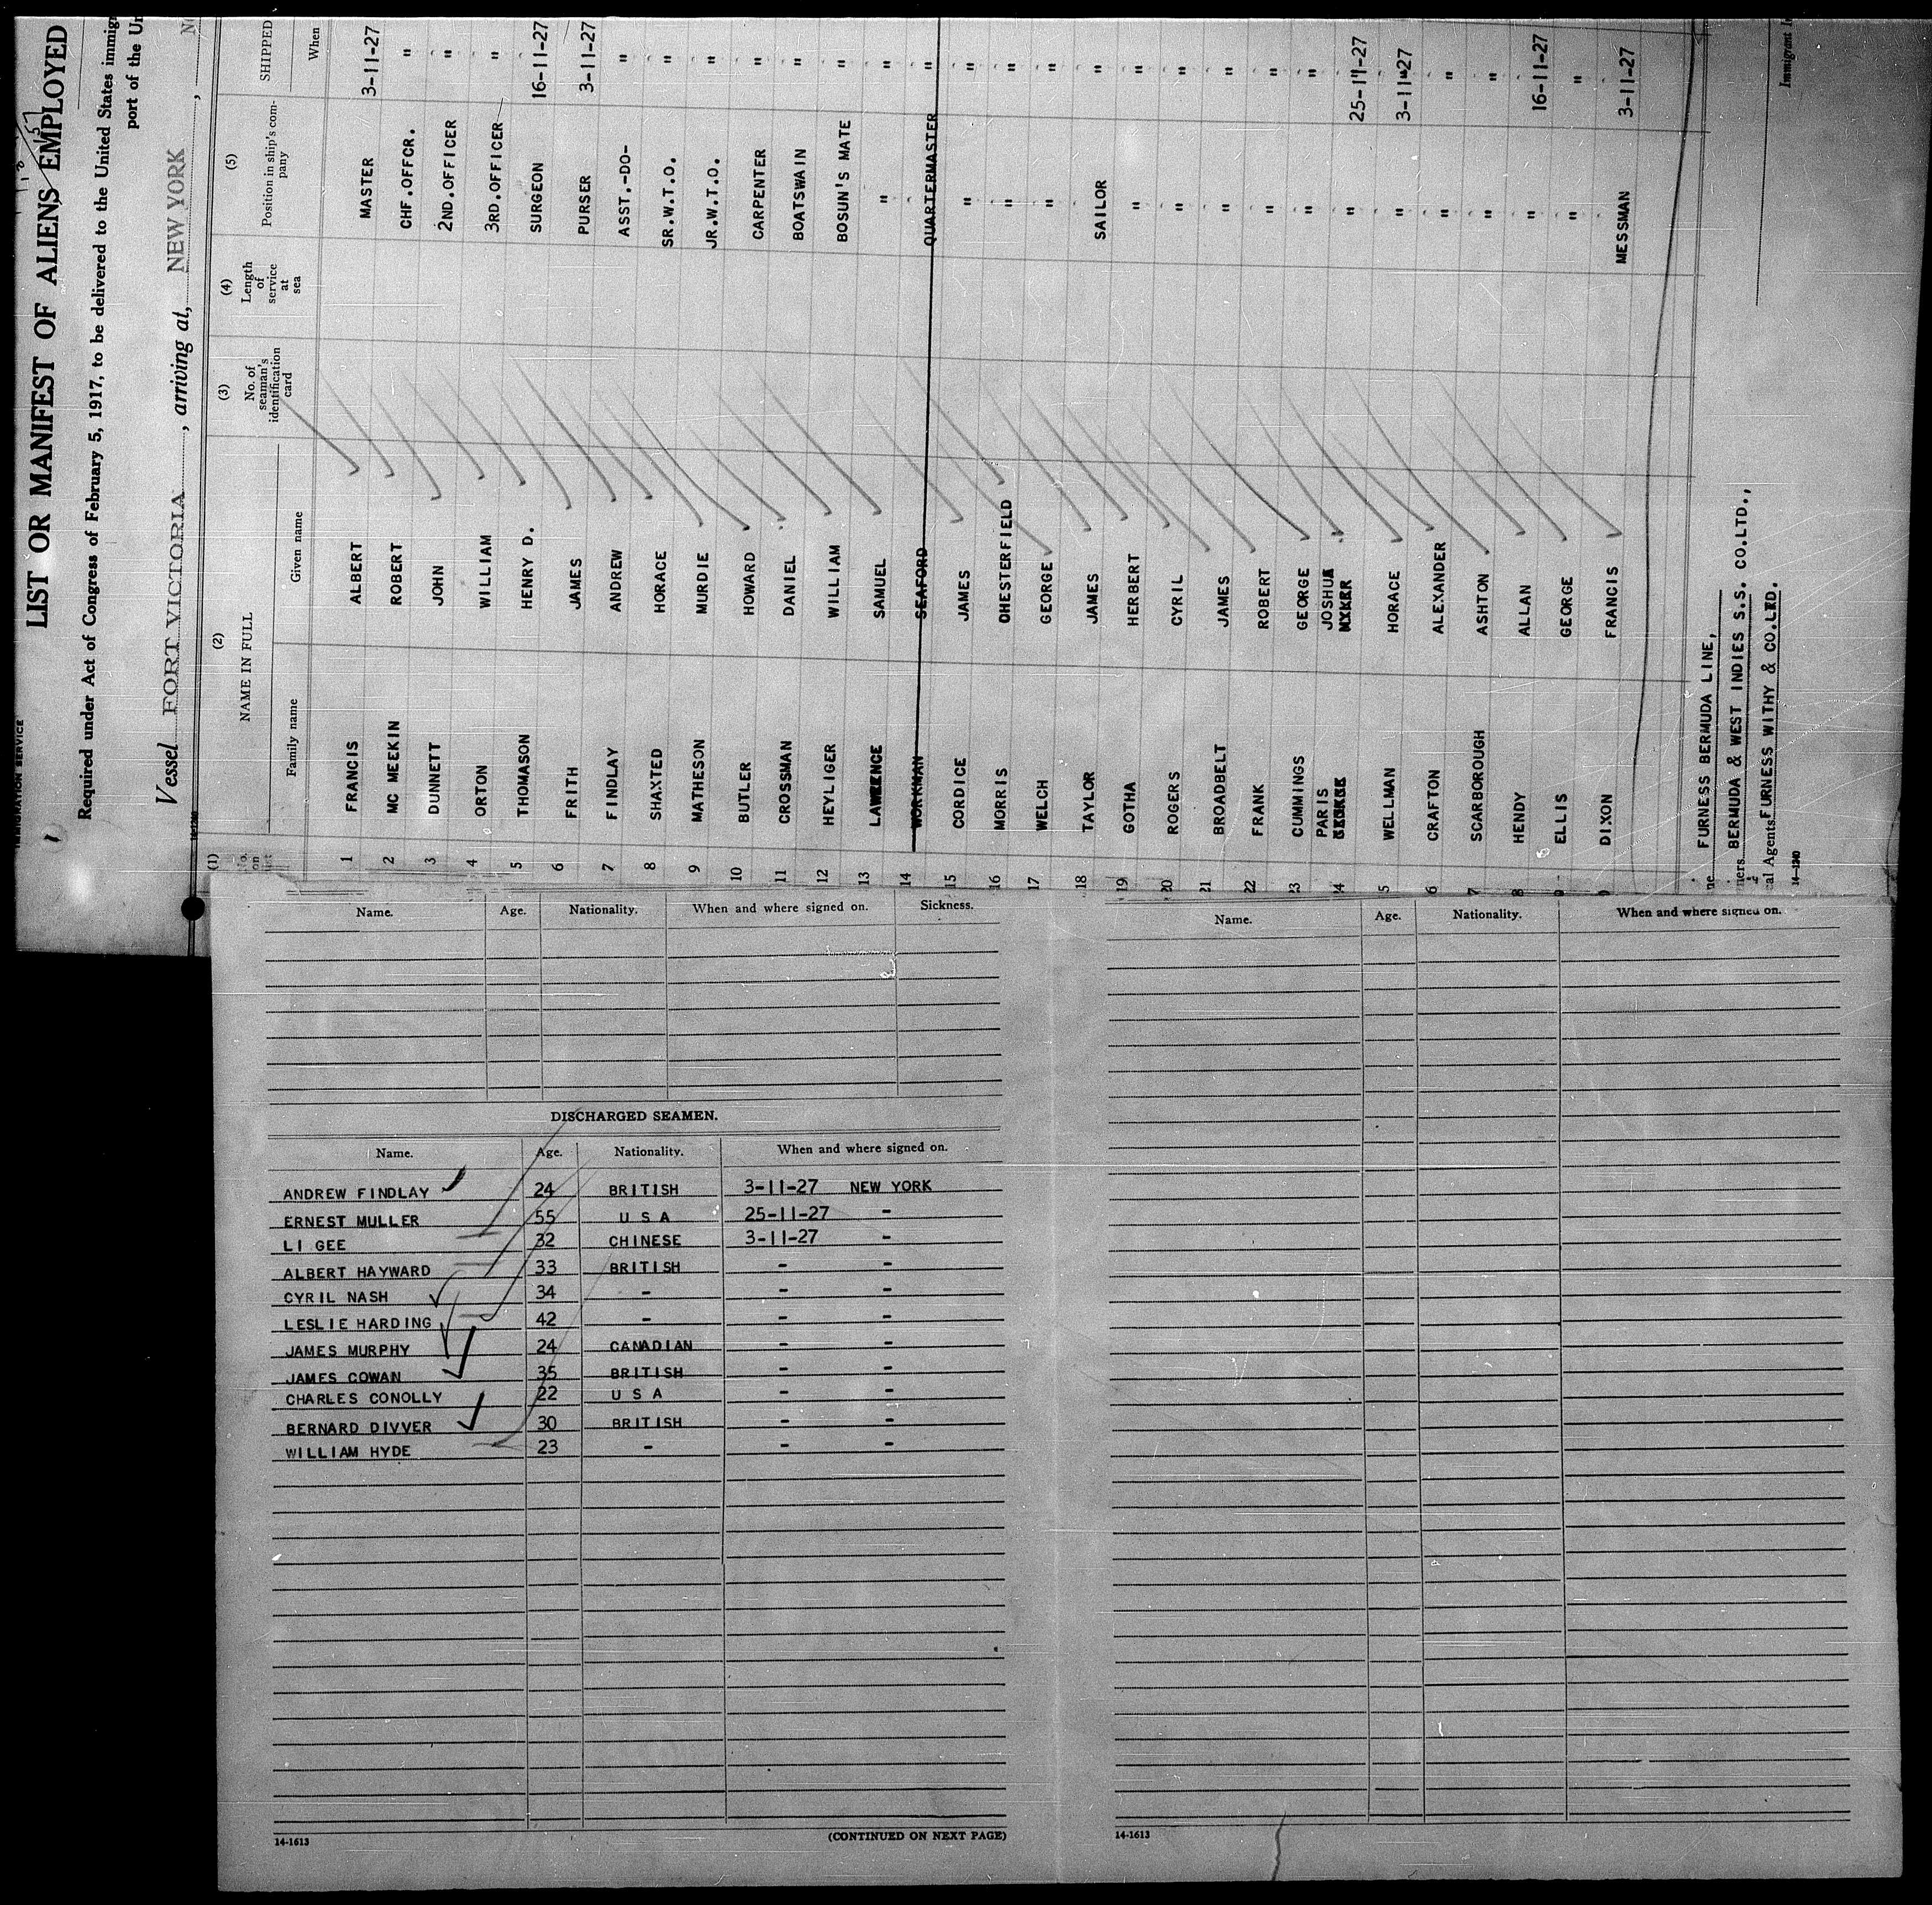 IMMIGRATION SERVICE
LIST OR MANIFEST OF ALIENS EMPLOYED
Required under Act of Congress of February 5, 1917, to be delivered to the United States immig
port of the Un
Vessel FORT VICTORIA, arriving at, NEW YORK,
(1) (2) (3) (4) (5)
NAME IN FULL
No. on list
Family name Given name No. of seaman's identification card Length of service at sea Position in ship's company SHIPPED When
1 FRANCIS ALBERT MASTER 3-11-27
2 MC MEEKIN ROBERT CHF.OFFCR. "
3 DUNNETT JOHN 2ND.OFFICER "
4 ORTON WILLIAM 3RD.OFFICER "
5 THOMASON HENRY D. SURGEON 16-11-27
6 FRITH JAMES PURSER 3-11-27
7 FINDLAY ANDREW ASST.-DO- "
8 SHAXTED HORACE SR.W.T.O. "
9 MATHESON MURDIE JR.W.T.O. "
10 BUTLER HOWARD CARPENTER "
11 CROSSMAN DANIEL BOATSWAIN "
12 HEYLIGER WILLIAM BOSUN'S MATE "
13 LAWRENCE SAMUEL " "
14 WORKMAN SEAFORD QUARTERMASTER "
15 CORDICE JAMES " "
16 MORRIS CHESTERFIELD " "
17 WELCH GEORGE " "
18 TAYLOR JAMES SAILOR "
19 GOTHA HERBERT " "
20 ROGERS CYRIL " "
21 BROADBELT JAMES " "
22 FRANK ROBERT " "
23 CUMMINGS GEORGE " "
24 PARIS JOSHUA " 25-11-27
5 WELLMAN HORACE " 3-11-27
6 CRAFTON ALEXANDER " "
7 SCARBOROUGH ASHTON " "
8 HENDY ALLAN " 16-11-27
9 ELLIS GEORGE " "
0 DIXON FRANCIS MESSMAN 3-11-27
ne FURNESS BERMUDA LINE,
ners BERMUDA & WEST INDIES S.S. CO.LTD.,
cal Agents FURNESS WITHY & CO.LTD.
Immigrant In
14-1240
Name. Age. Nationality. When and where signed on. Sickness.
DISCHARGED SEAMEN.
Name. Age. Nationality. When and where signed on.
ANDREW FINDLAY 24 BRITISH 3-11-27 NEW YORK
ERNEST MULLER 55 U S A 25-11-27 -
LI GEE 32 CHINESE 3-11-27 -
ALBERT HAYWARD 33 BRITISH - -
CYRIL NASH 34 - - -
LESLIE HARDING 42 - - -
JAMES MURPHY 24 CANADIAN - -
JAMES COWAN 35 BRITISH - -
CHARLES CONOLLY 22 U S A - -
BERNARD DIVVER 30 BRITISH - -
WILLIAM HYDE 23 - - -
14-1613 (CONTINUED ON NEXT PAGE)
Name. Age. Nationality. When and where signed on.
14-1613